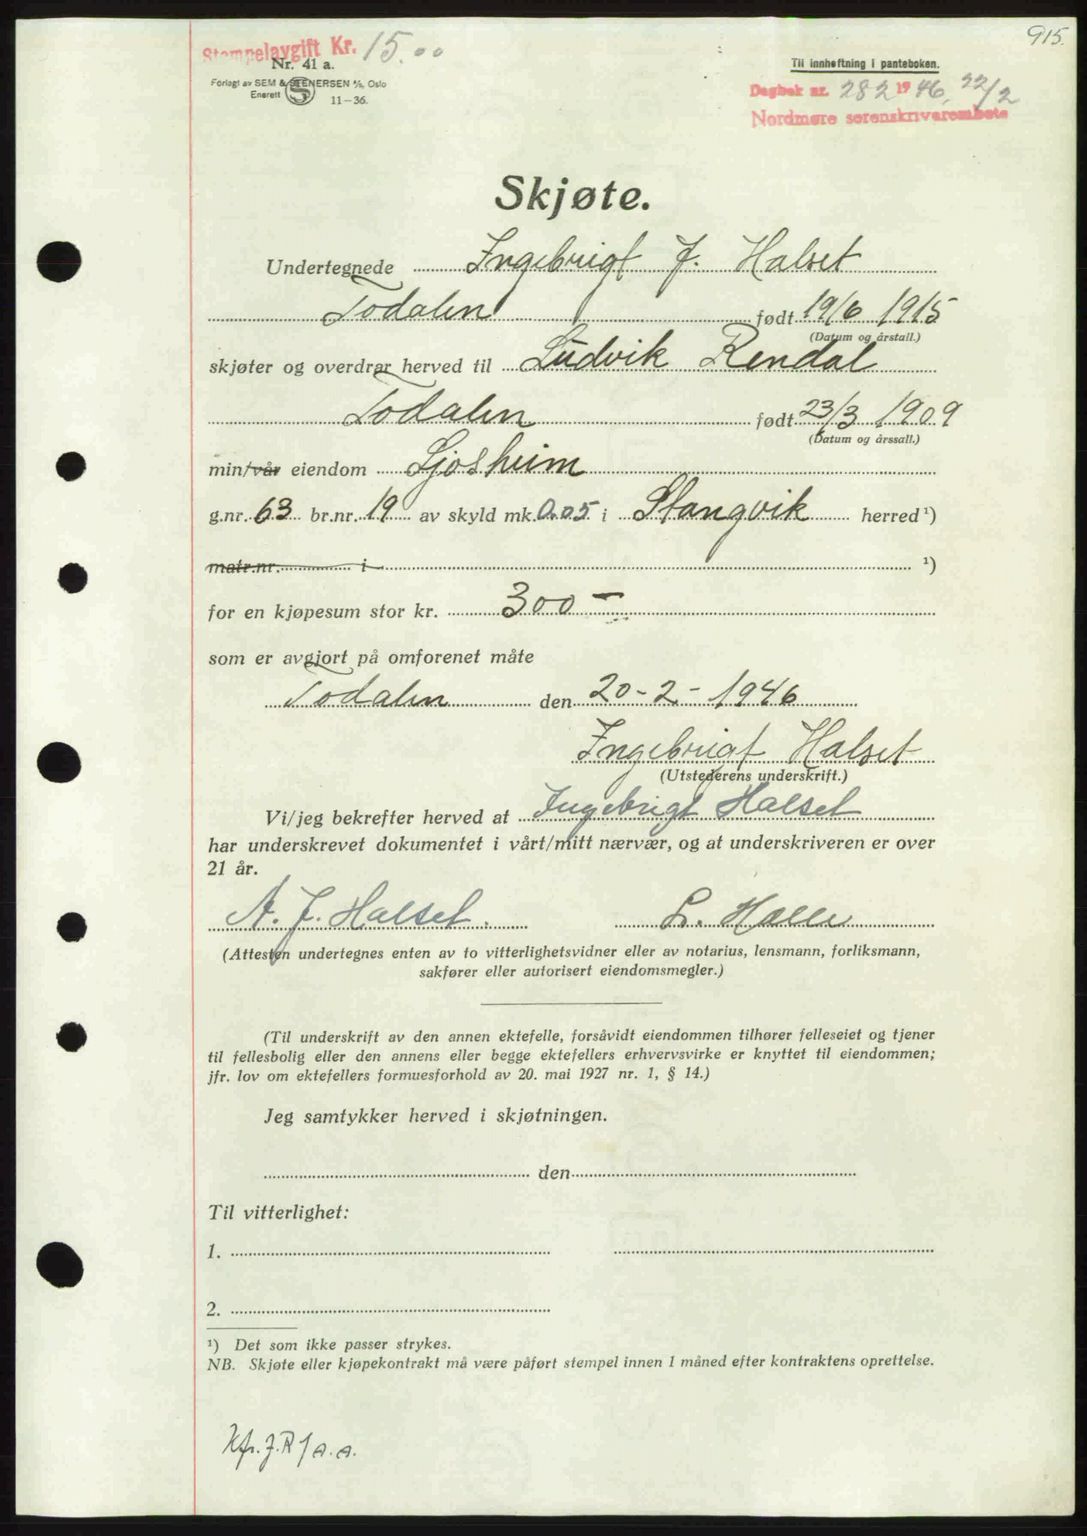 915.
Stempelavgift Kr. 15.00
Nr. 41 a.
Forlagt av SEM & STENERSEN A/S, Oslo
Enerett S 11-36.
Til innheftning i panteboken.
Dagbok nr. 282 1946, 22/2
Nordmøre sorenskrivarembete
Skjøte.
Undertegnede Ingebrigt J. Halset
Todalen født 19/6 1915
(Datum og årstall.)
skjøter og overdrar herved til Ludvik Rendal
Todalen født 23/3 1909
(Datum og årssall.)
min/vår eiendom Ljosheim
g.nr. 63 br.nr. 19 av skyld mk. 0.05 i Stangvik herred ¹)
matr.nr. i ¹)
for en kjøpesum stor kr. 300 –
som er avgjort på omforenet måte
Todalen den 20-2-1946
Ingebrigt Halset
(Utstederens underskrift.)
Vi/jeg bekrefter herved at Ingebrigt Halset
har underskrevet dokumentet i vårt/mitt nærvær, og at underskriveren er over
21 år.
A. J. Halset. L. Halle
(Attesten undertegnes enten av to vitterlighetsvidner eller av notarius, lensmann, forliksmann,
sakfører eller autorisert eiendomsmegler.)
(Til underskrift av den annen ektefelle, forsåvidt eiendommen tilhører felleseiet og tjener
til fellesbolig eller den annens eller begge ektefellers erhvervsvirke er knyttet til eiendommen;
jfr. lov om ektefellers formuesforhold av 20. mai 1927 nr. 1, § 14.)
Jeg samtykker herved i skjøtningen.
den
Til vitterlighet:
1.
2.
¹) Det som ikke passer strykes.
NB. Skjøte eller kjøpekontrakt må være påført stempel innen 1 måned efter kontraktens oprettelse.